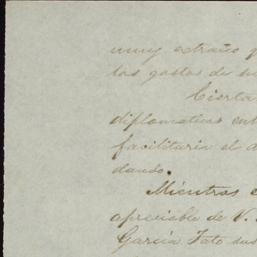 muy extraño q
los gastos de su
Cierta
diplomaticas ent
facilitaria el d
dando.
Mientras e
apreciable de V.
Garcia Tato sus